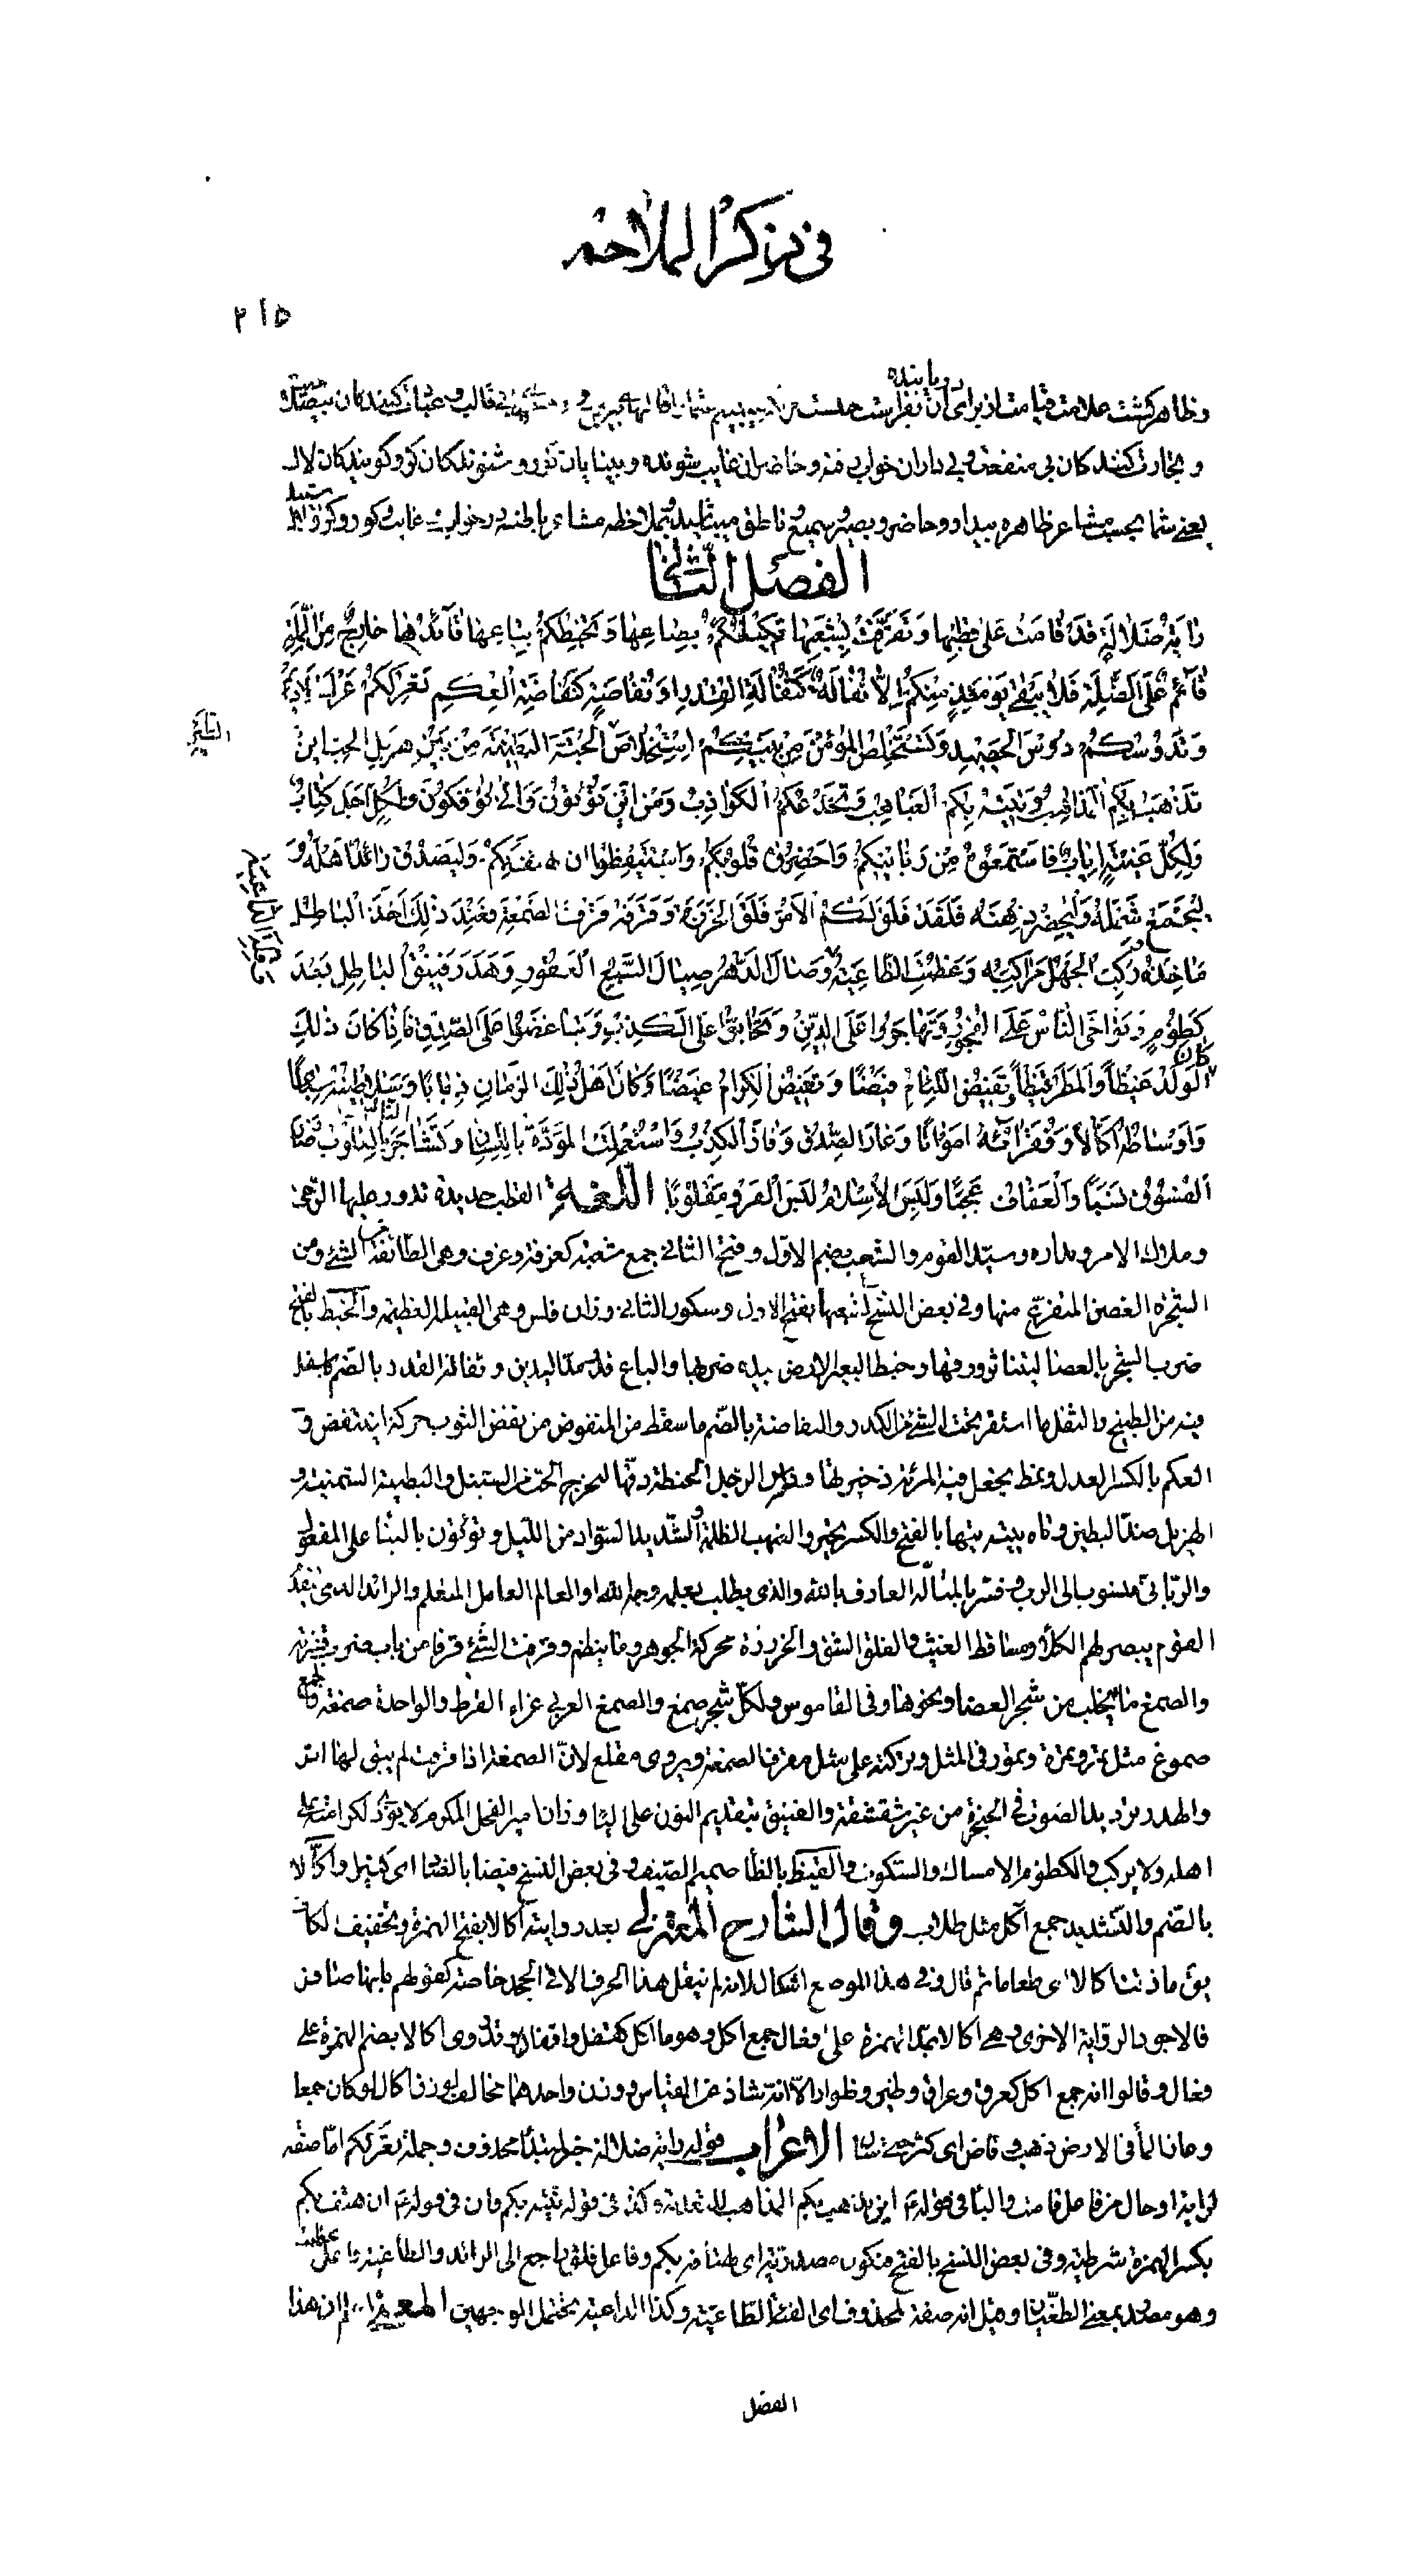 في ذكر الملاحم
٢١٥
دريابنده
وظاهر گشت علامت قيامت از براى آن بفراست
و تجارت كنندكان بى منفعت و بيداران خواب رفته و حاضران غايب شونده و بينايان كور و شنوندكان كر و كويندكان لال
يعنى شما بحسب مشاعر ظاهره بيدار و حاضر و بصير و سميع و ناطق ميباشيد و بملاحظه مشاعر باطنه در خواب و غايب و كور و كر و لال هستيد
الفصل الثاني
رايَةُ ضَلالَةٍ قَدْ قامَتْ عَلى قُطْبِها وَتَفَرَّقَتْ بِشُعَبِها تَكيلُكُمْ بِصاعِها وَتَخْبِطُكُمْ بِباعِها قآئِدُها خارِجٌ مِنَ الْمِلَّةِ
قآئِمٌ عَلَى الضِّلَّةِ فَلا يَبْقى يَوْمَئِذٍ مِنْكُمْ إِلّا ثُفالَةٌ كَثُفالَةِ الْقِدْرِ اَوْ نُفاضَةٌ كَنُفاضَةِ الْعِكْمِ تَعْرُكُكُمْ عَرْكَ الْأَديمِ
وَتَدُوسُكُمْ دَوْسَ الْحَصيدِ وَتَسْتَخْلِصُ الْمُؤْمِنَ مِنْ بَيْنِكُمْ اِسْتِخْلاصَ الْحَبَّةَ الْبَطينَةَ مِنْ بَيْنِ هَزيلِ الْحَبِّ اَيْنَ
الطَّيْرِ
تَذْهَبُ بِكُمُ الْمَذاهِبُ وَتَتيهُ بِكُمُ الْغَياهِبُ وَتَخْدَعُكُمُ الْكَواذِبُ وَمِنْ اَيْنَ تُؤْتَوْنَ وَأَنّى تُؤْفَكُونَ وَلِكُلِّ اَجَلٍ كِتابٌ
وَلِكُلِّ غَيْبَةٍ إِيابٌ فَاسْتَمِعُوهُ مِنْ رَبّانِيِّكُمْ وَاَحْضِرُوهُ قُلُوبَكُمْ وَاسْتَيْقِظُوا اِنْ هَتَفَ بِكُمْ وَلْيَصْدُقْ رائِدٌ اَهْلَهُ وَ
لْيَجْمَعْ شَمْلَهُ وَلْيُحْضِرْ ذِهْنَهُ فَلَقَدْ فَلَقَ لَكُمُ الْأَمْرَ فَلْقَ الْخَرَزَةِ وَقَرَفَهُ قَرْفَ الصَّمْغَةِ فَعِنْدَ ذلِكَ اَخَذَ الْباطِلُ
مَآخِذَهُ وَرَكِبَ الْجَهْلُ مَراكِبَهُ وَعَظُمَتِ الطّاغِيَةُ وَصالَ الدَّهْرُ صِيالَ السَّبُعِ الْعَقُورِ وَهَدَرَ فَنيقُ الْباطِلِ بَعْدَ
كُظُومٍ وَتَواخَى النّاسُ عَلَى الْفُجُورِ وَتَهاجَرُوا عَلَى الدّينِ وَتَحابُّوا عَلَى الْكَذِبِ وَتَباغَضُوا عَلَى الصِّدْقِ فَإِذا كانَ ذلِكَ
كانَ
الْوَلَدُ غَيْظاً وَالْمَطَرُ قَيْظاً وَتَفيضُ اللِّئامُ فَيْضًا وَتَغيضُ الْكِرامُ غَيْضًا وَكانَ اَهْلُ ذلِكَ الزَّمانِ ذِئابًا وَسَلاطينُهُ سِباعًا
وَاَوْساطُهُ اُكّالاً وَفُقَرآئُهُ اَمْواتًا وَغارَ الصِّدْقُ وَفاضَ الْكِذْبُ وَاسْتُعْمِلَتِ الْمَوَدَّةُ بِاللِّسانِ وَتَشاجَرَ النّاسُ بِالْقُلُوبِ وَصارَ
الْفُسُوقُ نَسَبًا وَالْعَفافُ عَجَبًا وَلُبِسَ الْإِسْلامُ لُبْسَ الْفَرْوِ مَقْلُوبًا اللغة القطب حديدة تدور عليها الرحى
وملاك الامر ومداره وسيّد القوم والشعب بضم الاول وفتح الثاني جمع شعبة كغرفة وغرف وهى الطائفة من الشئ ومن
الشجرة الغصن المتفرّع منها وفي بعض النسخ بشعبها بفتح الاول وسكون الثاني وزان فلس وهى القبيلة العظيمة والخبط بالفتح
ضرب الشجر بالعصا ليتناثر ورقها وخبط البعير الارض بيده ضربها والباع قدر مدّ اليدين وثفالة القدر بالضم ما سفل
فيه من الطبيخ والثفل ما استقر تحت الشئ من الكدر والنفاضة بالضم ما سقط من المنفوض من نفض الثوب حركه لينتفض و
العكم بالكسر العدل ونمط يجعل فيه المرئة ذخيرتها وداس الرجل الحنطة دقّها ليخرج الحبّ من السنبل والبطينة السمينة و
الهزيل ضدّ البطين وتاه يتيه تيها بالفتح والكسر تحيّر والغيهب الظلمة والشّديد السّواد من الليل وتؤتون بالبناء على المفعول
والربّاني منسوب الى الرب وفسّر بالمتألّه العارف بالله والذى يطلب بعلمه وجه الله او العالم العامل المعلم والرائد الذى يتقدّم
القوم يبصر لهم الكلاء ومساقط الغيث والفلق الشق والخرزة محركة الجوهر وما ينظم وقرفت الشئ قرفا من باب ضرب قشرته
والصمغ ما يتحلب من شجر العضا ونحوها وفي القاموس ولكلّ شجر صمغ والصمغ العربى غراء القرظ والواحدة صمغة والجمع
صموغ مثل تمر وتمرة وتمور وفى المثل وتركته على مثل مقرف الصمغة ويروى مقلع لانّ الصمغة اذا قرفت لم يبق لها اثر
والهدر ترديد الصوت في الحنجرة من غير شقشقة والفنيق بتقديم النون على الياء وزان امير الفحل المكرم لا يؤذى لكرامته على
اهله ولا يركب والكظوم الامساك والسكون والقيظ بالظاء صميم الصيف وفي بعض النسخ فيضا بالضاد اى كثير واكّالا
بالضم والتّشديد جمع آكل مثل طلاب وقال الشارح المعتزلى بعد روايته أكالا بفتح الهمزة وتخفيف الكاف
يق ما ذقت اكالا اى طعاما ثم قال وفى هذا الموضع اشكال لانه لم ينقل هذا الحرف الا في الجحد خاصة كقولهم ما بها صافر
فالاجود الرواية الاخرى وهى آكالا بمدّ الهمزة على افعال جمع اكل وهو ما اكل كقفل واقفال وقد روى اكالا بضم الهمزة على
فعال وقالوا انه جمع اكل كعرق وعراق وظئر وظوار الّا انّه شاذ عن القياس ووزن واحدهما مخالف لوزن اكال لو كان جمعا
وغار الماء في الارض ذهب وفاض اى كثر حتى سال الاعراب قوله راية ضلالة خبر لمبتدأ محذوف وجملة تعركم امّا صفة
لراية او حال من فاعل قامت والباء في قوله ع اين تذهب بكم المذاهب للتعدية وكذا في قوله تتيه بكم وان في قوله ع ان هتف بكم
بكسر الهمزة شرطية وفى بعض النسخ بالفتح فتكون مصدريّة اى لهتافه بكم وفاعل فلق راجع الى الرائد والطاغية فاعل عظمت
وهو مصدر بمعنى الطغيان وقيل انه صفة لمحذوف اى الفئة الطّاغية وكذا الداعية يحتمل الوجهين المعنى اعلم ان هذا
الفصل